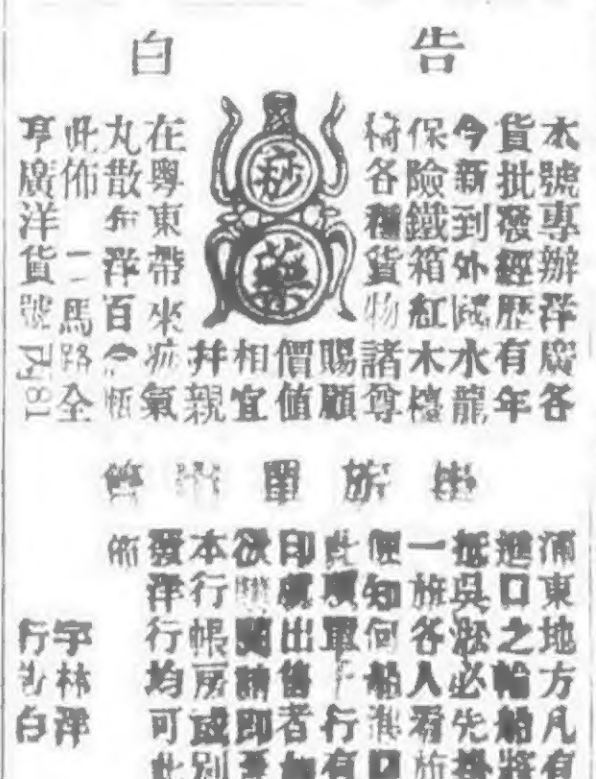 告白
本號專辦洋廣各
貨批發經歷有年
今新到外國水龍
保險鐵箱紅木檯
椅各種貨物諸尊
賜顧
價值
相宜
痧藥
幷親
在粵東帶來痧氣
丸散 洋百 瓶
此佈 二馬路全
亨廣洋貨號 81
旗單出售
浦東地方凡有
進口之輪船將
抵吳淞必先掛
一旗各人看旗
便知何船進口
此旗單 行有
印 出售者如
欲購閱請即至
本行帳房或別
發洋行均可此
佈
字林洋
行告白